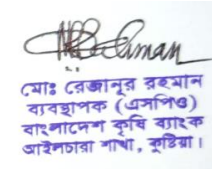 মোঃ রেজানুর রহমান
ব্যবস্থাপক (এসপিও)
বাংলাদেশ কৃষি ব্যাংক
আইলচারা শাখা, কুষ্টিয়া।